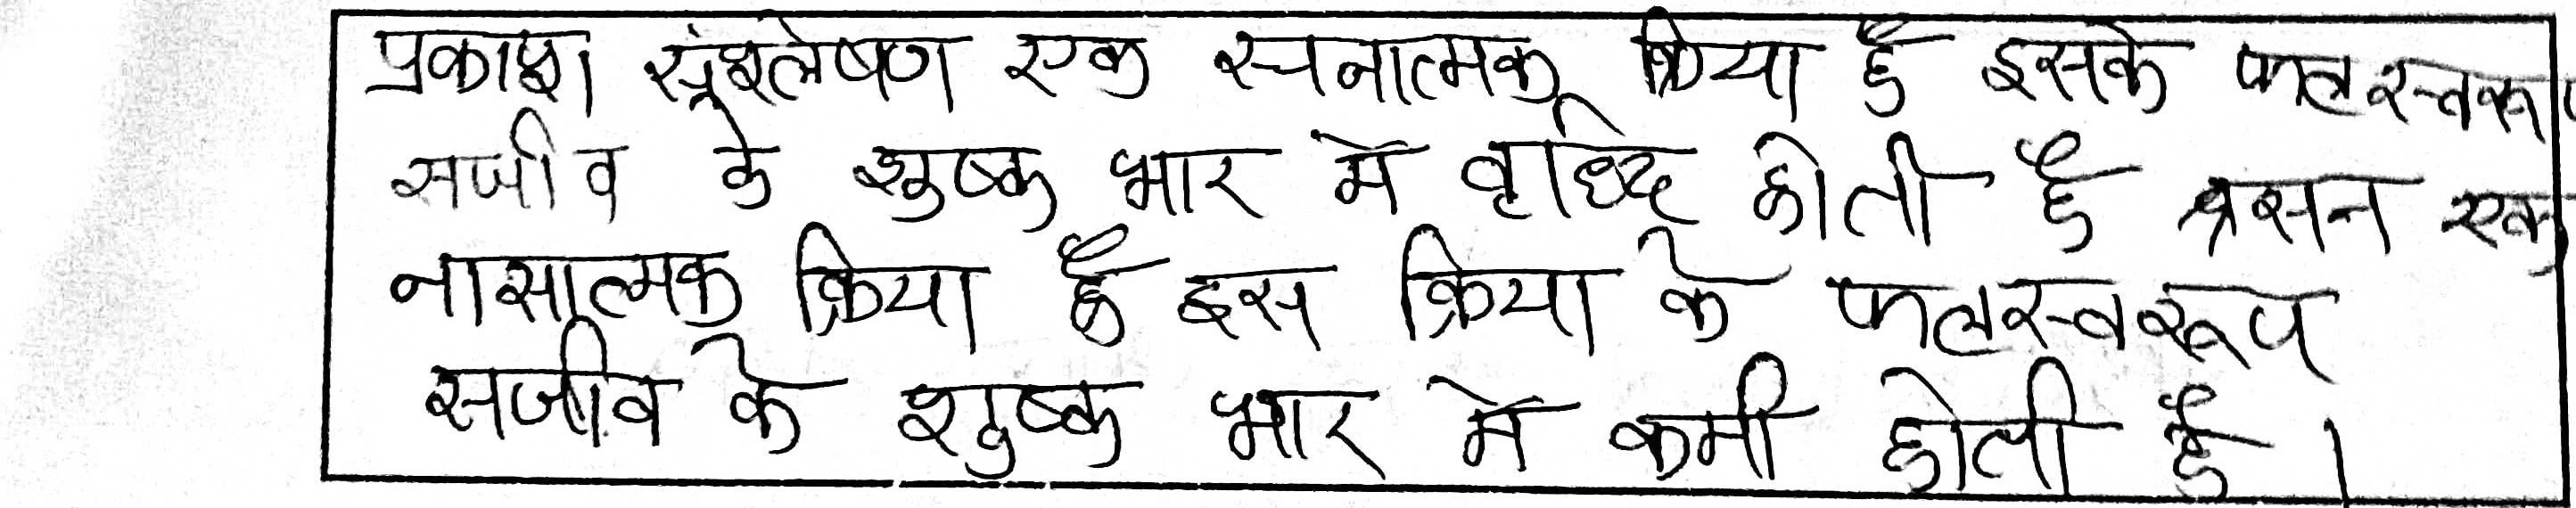 प्रकाश संश्लेषण एक रचनात्मक क्रिया है इसके फलस्वरूप
सजीव के शुष्क भार में वृद्धि होती है श्वसन एक
नासात्मक क्रिया है इस क्रिया के फलस्वरूप
सजीव के शुष्क भार में कमी होती है।